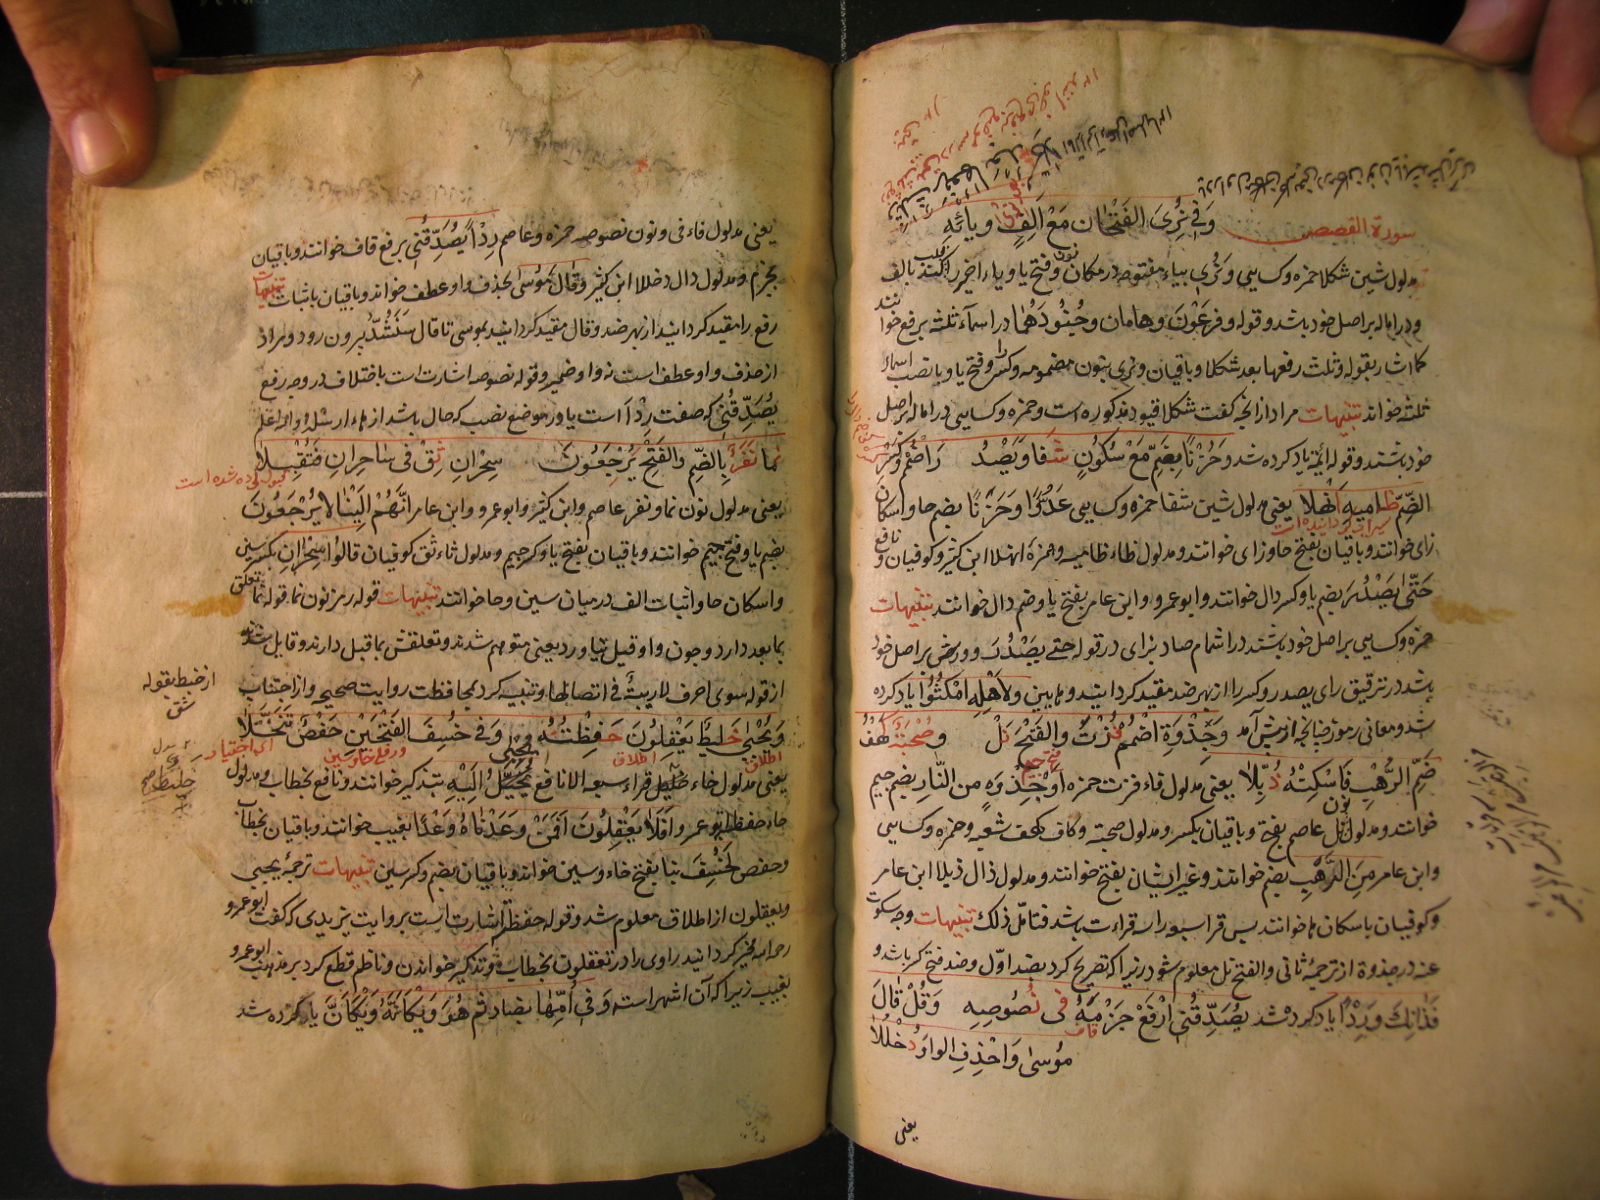 سورة القصص وَفِي نُرِيَ الفَتْحَانِ مَعْ أَلِفٍ وَيَائِهِ
مدلول شين شكلا حمزه وكسايى وَيَرَى بياء مفتوحه در مكان نون وفتح يا وياء اخير را بالف
ودر اماله بر اصل خود باشد وقوله وفرعون وهامان وجنودهما در اسماء ثلثه برفع خوانند
كما اشار بقوله وثلث رفعها بعد شكلا وباقيان ونرى بنون مضمومه وكسر را وفتح يا وبا نصب اسماء
ثلثه خواند تنبيهات مراد از انچه كفت شكلا قيود مذكوره است وحمزه وكسايى در اماله بر اصل
خود باشند وقوله ائمة ياد كرده شد وَحُزْنًا بِضَمٍّ مَعْ سُكُونٍ شَفَا وَيَصْدُ رَ اضْمُمْ وَكَسْرُ
الضَّمِّ ظَامِيهِ أَنْهَلَا يعنى مدلول شين شفا حمزه وكسايى عَدُوًّا وَحُزْنًا بضم حا واسكان
زاى خوانند وباقيان بفتح حا وزاى خوانند ومدلول ظاء ظاميه وهمزه انهلا ابن كثير وكوفيان ونافع
حَتَّى يُصْدِرَ بضم يا وكسر دال خوانند وابو عمرو وابن عامر بفتح يا وضم دال خوانند تنبيهات
حمزه وكسايى بر اصل خود باشند در اشمام صاد بزاى در قوله حتى يصدر وورش بر اصل خود
باشد در ترقيق راى يصدر وكسر را از بهر ضد مقيد كردانيد وهابين ولاهله امكثوا ياد كرده
شد ومعانى رموز ضيا انچه از پيش آمد وَجِذْوَةٍ اضْمُمْ فُزْتَ وَالفَتْحَ نَلْ وَصُحْبَةٌ كَهْفُ
ضَمِّ الرَّهْبِ وَاسْكِنْهُ ذُبَّلَا يعنى مدلول فاء فزت حمزه أَوْ جُذْوَةٍ مِنَ النَّارِ بضم جيم
خوانند ومدلول نون نل عاصم بفتح وباقيان بكسر ومدلول صحبة وكاف كهف شعبه وحمزه وكسايى
وابن عامر مِنَ الرُّهْبِ بضم خوانند وغير ايشان بفتح خوانند ومدلول ذال ذبلا ابن عامر
وكوفيان باسكان ها خوانند پس قرا سبعه را سه قراءت باشد فتامل ذلك تنبيهات وجه سكوت
عنه در جذوة از ترجمه ثانى والفتح نل معلوم شود زيرا كه تصريح كرد بضد اول وضد فتح كسر باشد و
فذانك وردءا ياد كرده شد يُصَدِّقُنِي ارْفَعْ جَزْمَهُ فِي نُصُوصِهِ وَقُلْ قَالَ
مُوسَى وَاحْذِفِ الوَاوَ دُخْلُلَا
يعنى
يعنى مدلول فاء فى ونون نصوصه حمزه وعاصم رِدْءًا يُصَدِّقُنِي برفع قاف خوانند وباقيان
بجزم ومدلول دال دخللا ابن كثير وقال موسى بحذف واو عطف خواند وباقيان باثبات تنبيهات
رفع را مقيد كردانيد از بهر ضد وقال مقيد كردانيد بموسى تا قال سَنَشُدُّ بيرون رود ومراد
از حذف واو عطف است نه واو ضمير وقوله نصوصه اشارت است باختلاف در وجه رفع
يُصَدِّقُنِي كه صفت رِدْءًا است يا در موضع نصب كه حال باشد از هاء ارسله والله اعلم
نَمَا نَفَرٌ بِالضَّمِّ وَالفَتْحِ يَرْجِعُونَ سِحْرَانِ ثِقْ فِي سَاحِرَانِ فَتُقْبَلَا
قبول كرده شده است
يعنى مدلول نون نما ونفر عاصم وابن كثير وابو عمرو وابن عامر أَنَّهُمْ إِلَيْنَا لَا يُرْجَعُونَ
بضم يا وفتح جيم خوانند وباقيان بفتح يا وكسر جيم ومدلول ثاء ثق كوفيان قالوا سِحْرَانِ بكسر سين
واسكان حا واثبات الف در ميان سين وحا خوانند تنبيهات قوله رمز نون نما قوله نما تعلق
بما بعد دارد وچون واو قبل نياورد يعنى متوهم شدند وتعلقش بما قبل دارند وقايل شدند
از قوله سوى احرف لا ريبة فى اتصالها وتنبيه كرد بمحافظت روايت صحيحه واز اجتناب
از خبط بقوله
ثق
وَيُجْبَى خَلِيطٌ يَعْقِلُونَ حَفِظْتُهُ وَفِي خُسِفَ الفَتْحَيْنِ حَفْصٌ تَنَخَّلَا
يعنى مدلول خاء خليط قراء سبعه الا نافع يُجْبَى إِلَيْهِ بتذكير خوانند ونافع بخطاب ومدلول
حاء حفظته ابو عمرو أَفَلَا يَعْقِلُونَ أَفَمَنْ وَعَدْنَاهُ وَعْدًا بغيب خوانند وباقيان بخطاب
وحفص لَخَسَفَ بِنَا بفتح خاء وسين خواند وباقيان بضم وكسر سين تنبيهات ترجمه يجبى
ويعقلون از اطلاق معلوم شد وقوله حفظته اشارت است بروايت يزيدى كه كفت ابو عمرو
رحمه الله مخير كردانيد راوى را در تعقلون بخطاب وتذكير خواندن وناظم قطع كرد بر مذهب ابو عمرو
بغيب زيرا كه آن اشهر است وَفِي أُمِّهَا بضاد ثُمَّ هُوَ وَيْكَأَنَّهُ وَيْكَأَنَّ ياد كرده شد